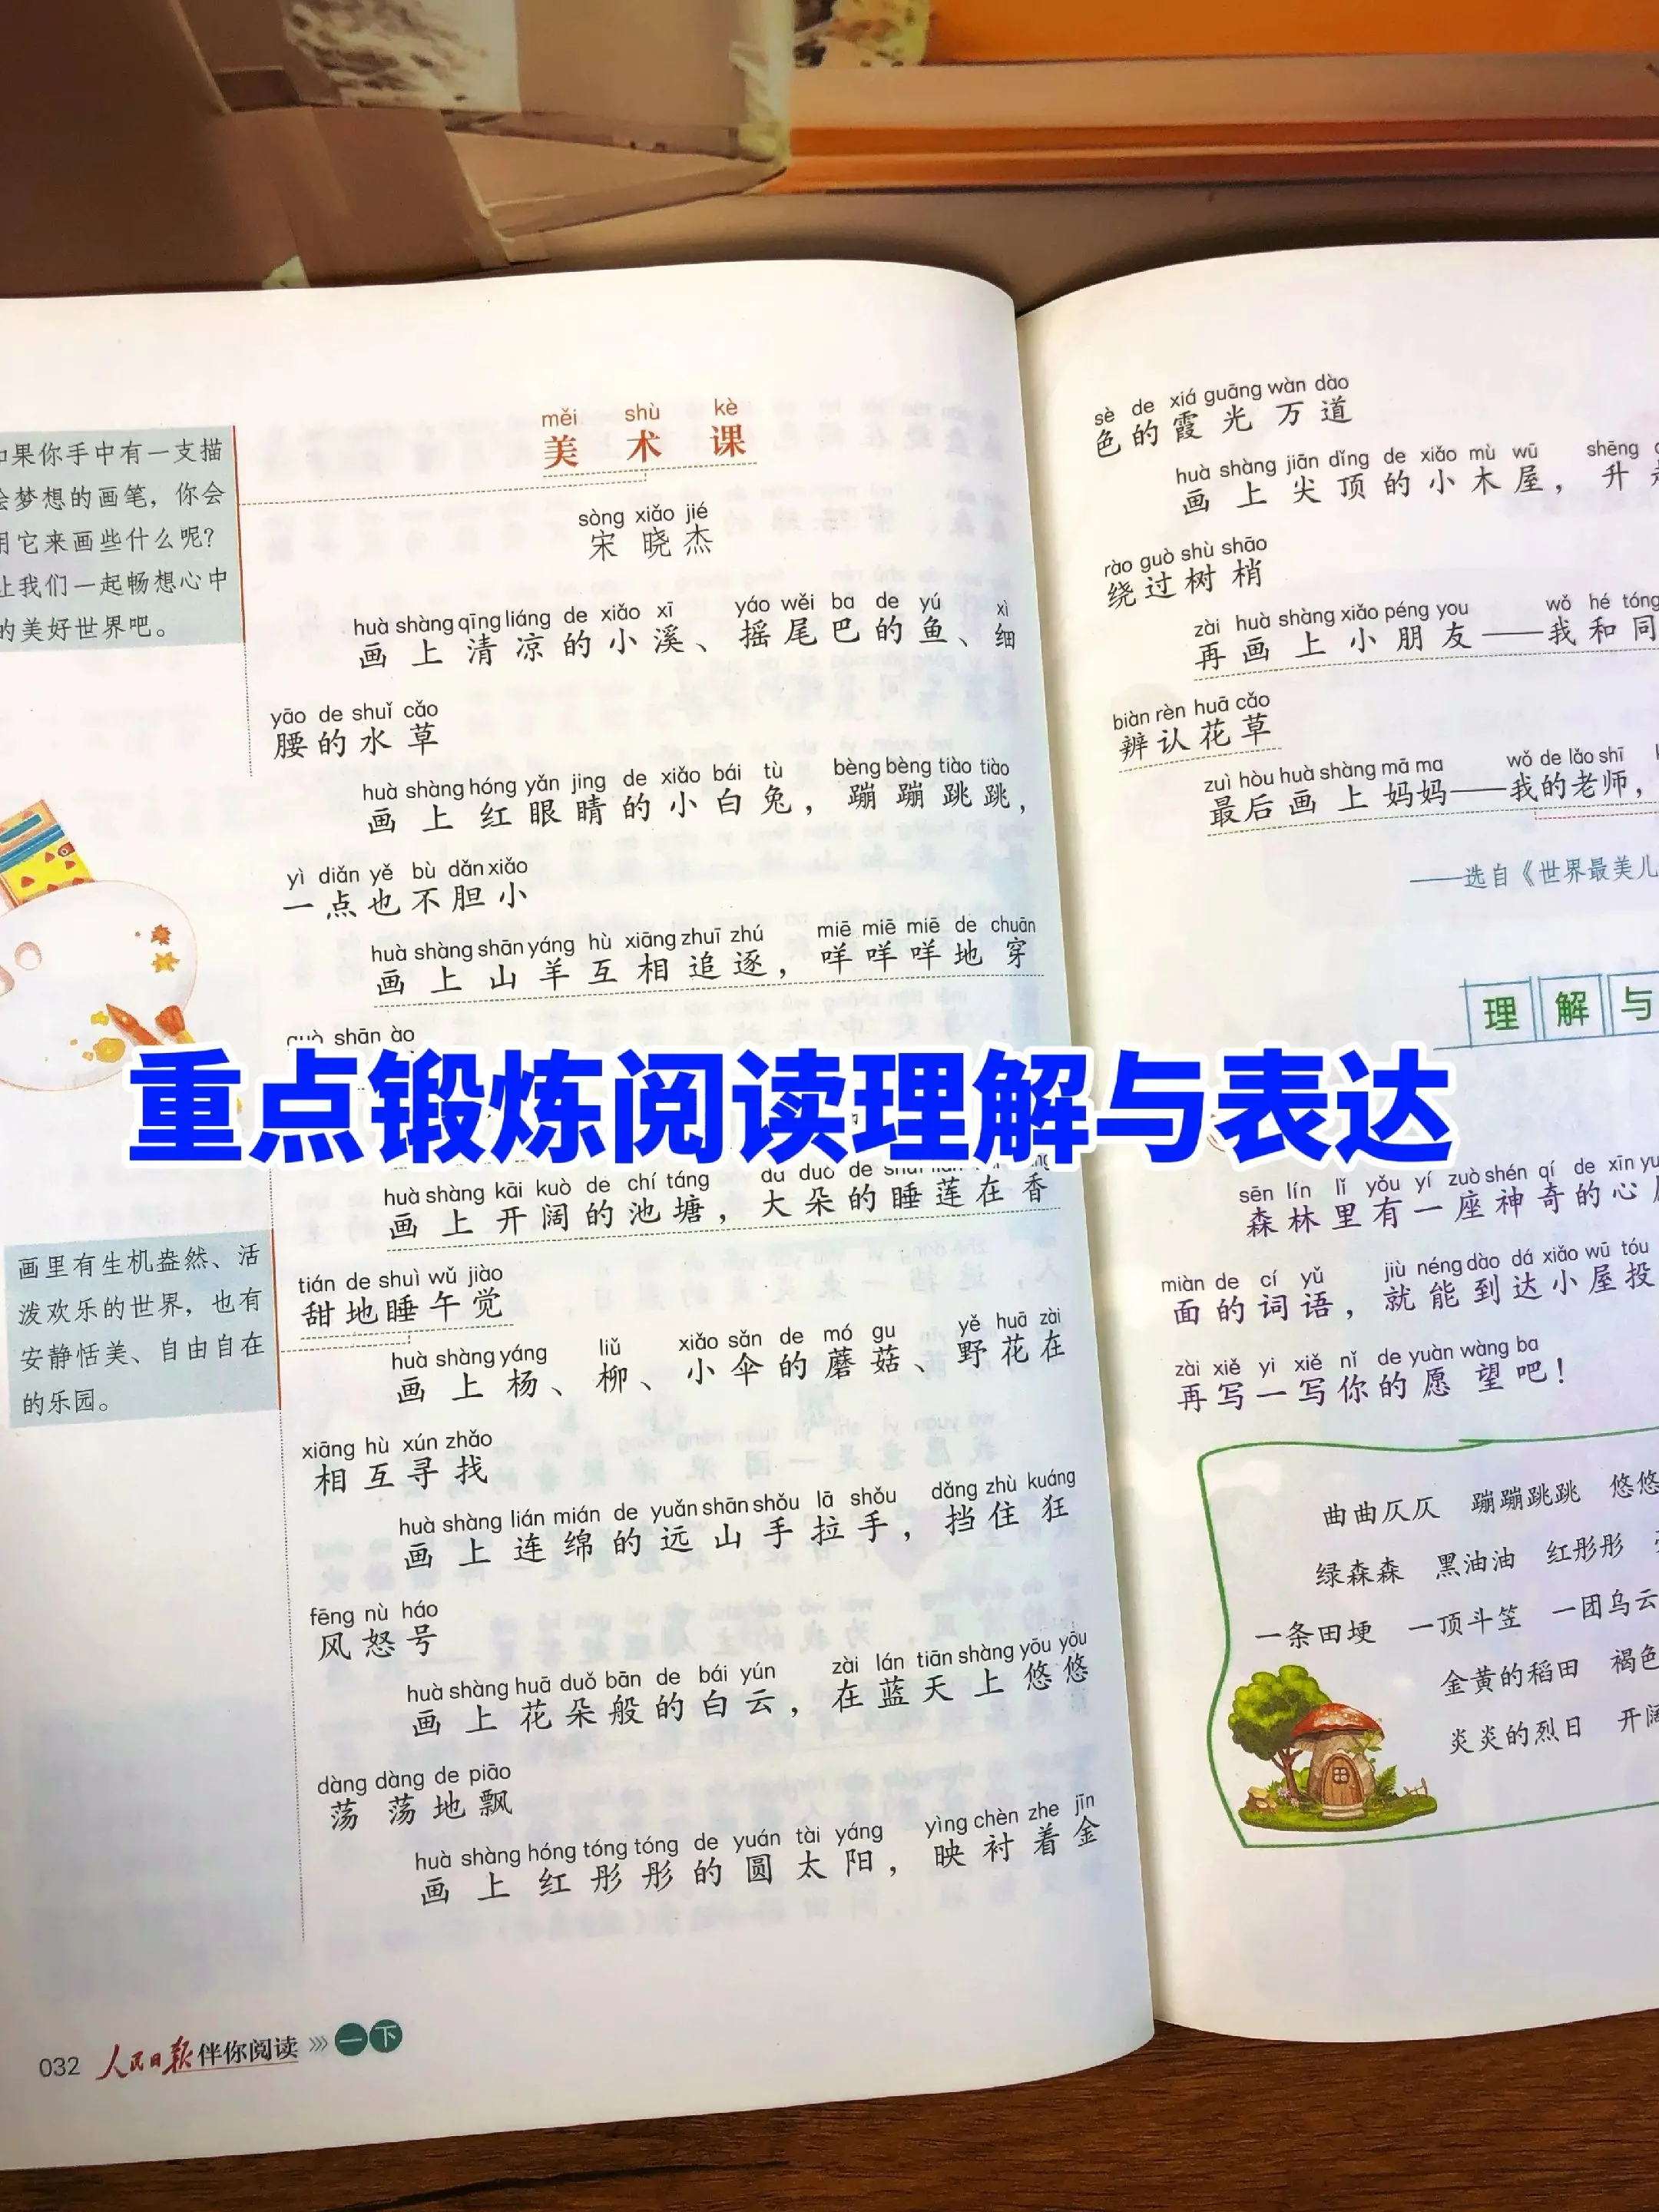 měi shù kè
美术课
sòng xiǎo jié
宋晓杰
果你手中有一支描
梦想的画笔，你会
它来画些什么呢？
我们一起畅想心中
的美好世界吧。
huà shàng qīng liáng de xiǎo xī yáo wěi ba de yú xì
画上清凉的小溪、摇尾巴的鱼、细
yāo de shuǐ cǎo
腰的水草
huà shàng hóng yǎn jing de xiǎo bái tù bèng bèng tiào tiào
画上红眼睛的小白兔，蹦蹦跳跳，
yì diǎn yě bù dǎn xiǎo
一点也不胆小
huà shàng shān yáng hù xiāng zhuī zhú miē miē miē de chuān
画上山羊互相追逐，咩咩咩地穿
shān ào
重点锻炼阅读理解与表达
huà shàng kāi kuò de chí táng duǒ de
画上开阔的池塘，大朵的睡莲在香
tián de shuì wǔ jiào
甜地睡午觉
画里有生机盎然、活
泼欢乐的世界，也有
安静恬美、自由自在
的乐园。
huà shàng yáng liǔ xiǎo sǎn de mó gu yě huā zài
画上杨、柳、小伞的蘑菇、野花在
xiāng hù xún zhǎo
相互寻找
huà shàng lián mián de yuǎn shān shǒu lā shǒu dǎng zhù kuáng
画上连绵的远山手拉手，挡住狂
fēng nù háo
风怒号
huà shàng huā duǒ bān de bái yún zài lán tiān shàng yōu yōu
画上花朵般的白云，在蓝天上悠悠
dàng dàng de piāo
荡荡地飘
huà shàng hóng tóng tóng de yuán tài yáng yìng chèn zhe jīn
画上红彤彤的圆太阳，映衬着金
032 人民日报伴你阅读 一下
sè de xiá guāng wàn dào
色的霞光万道
huà shàng jiān dǐng de xiǎo mù wū shēng
画上尖顶的小木屋，升
rào guò shù shāo
绕过树梢
zài huà shàng xiǎo péng you wǒ hé tóng
再画上小朋友——我和同
biàn rèn huā cǎo
辨认花草
zuì hòu huà shàng mā ma wǒ de lǎo shī
最后画上妈妈——我的老师，
——选自《世界最美儿
理解与
sēn lín lǐ yǒu yí zuò shén qí de xīn yu
森林里有一座神奇的心
miàn de cí yǔ jiù néng dào dá xiǎo wū tóu
面的词语，就能到达小屋投
zài xiě yi xiě nǐ de yuàn wàng ba
再写一写你的愿望吧！
曲曲仄仄 蹦蹦跳跳 悠悠
绿森森 黑油油 红彤彤
一条田埂 一顶斗笠 一团乌云
金黄的稻田 褐色
炎炎的烈日 开阔